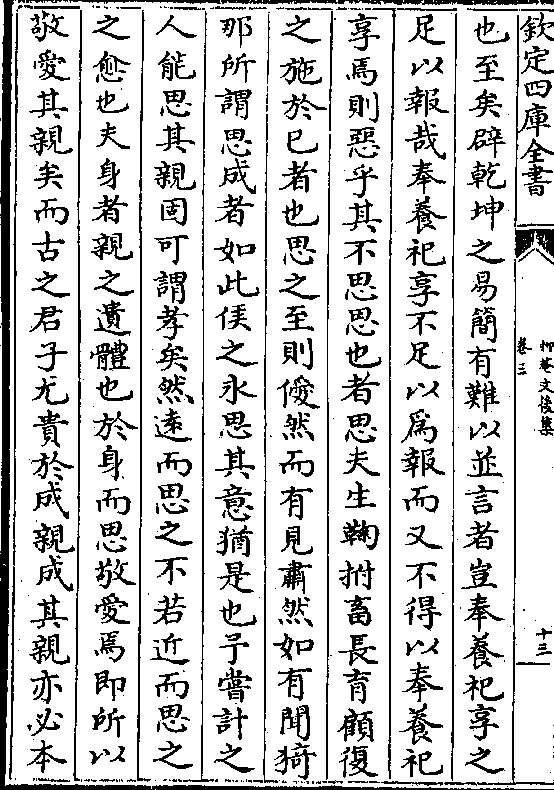 欽定四庫全書
抑菴文後集
卷三
十三
也至矣辟乾坤之易簡有難以並言者豈奉養祀享之
足以報哉奉養祀享不足以爲報而又不得以奉養祀
享焉則惡乎其不思思也者思夫生鞠拊畜長育顧復
之施於已者也思之至則僾然而有見肅然如有聞猗
那所謂思成者如此侯之永思其意猶是也予嘗計之
人能思其親固可謂孝矣然逺而思之不若近而思之
之愈也夫身者親之遺體也於身而思敬愛焉即所以
敬愛其親矣而古之君子尤貴於成親成其親亦必本